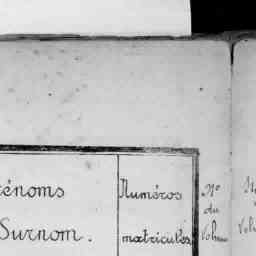 rénoms
Surnom.
Numéros
matricules
Nº
du
Volume